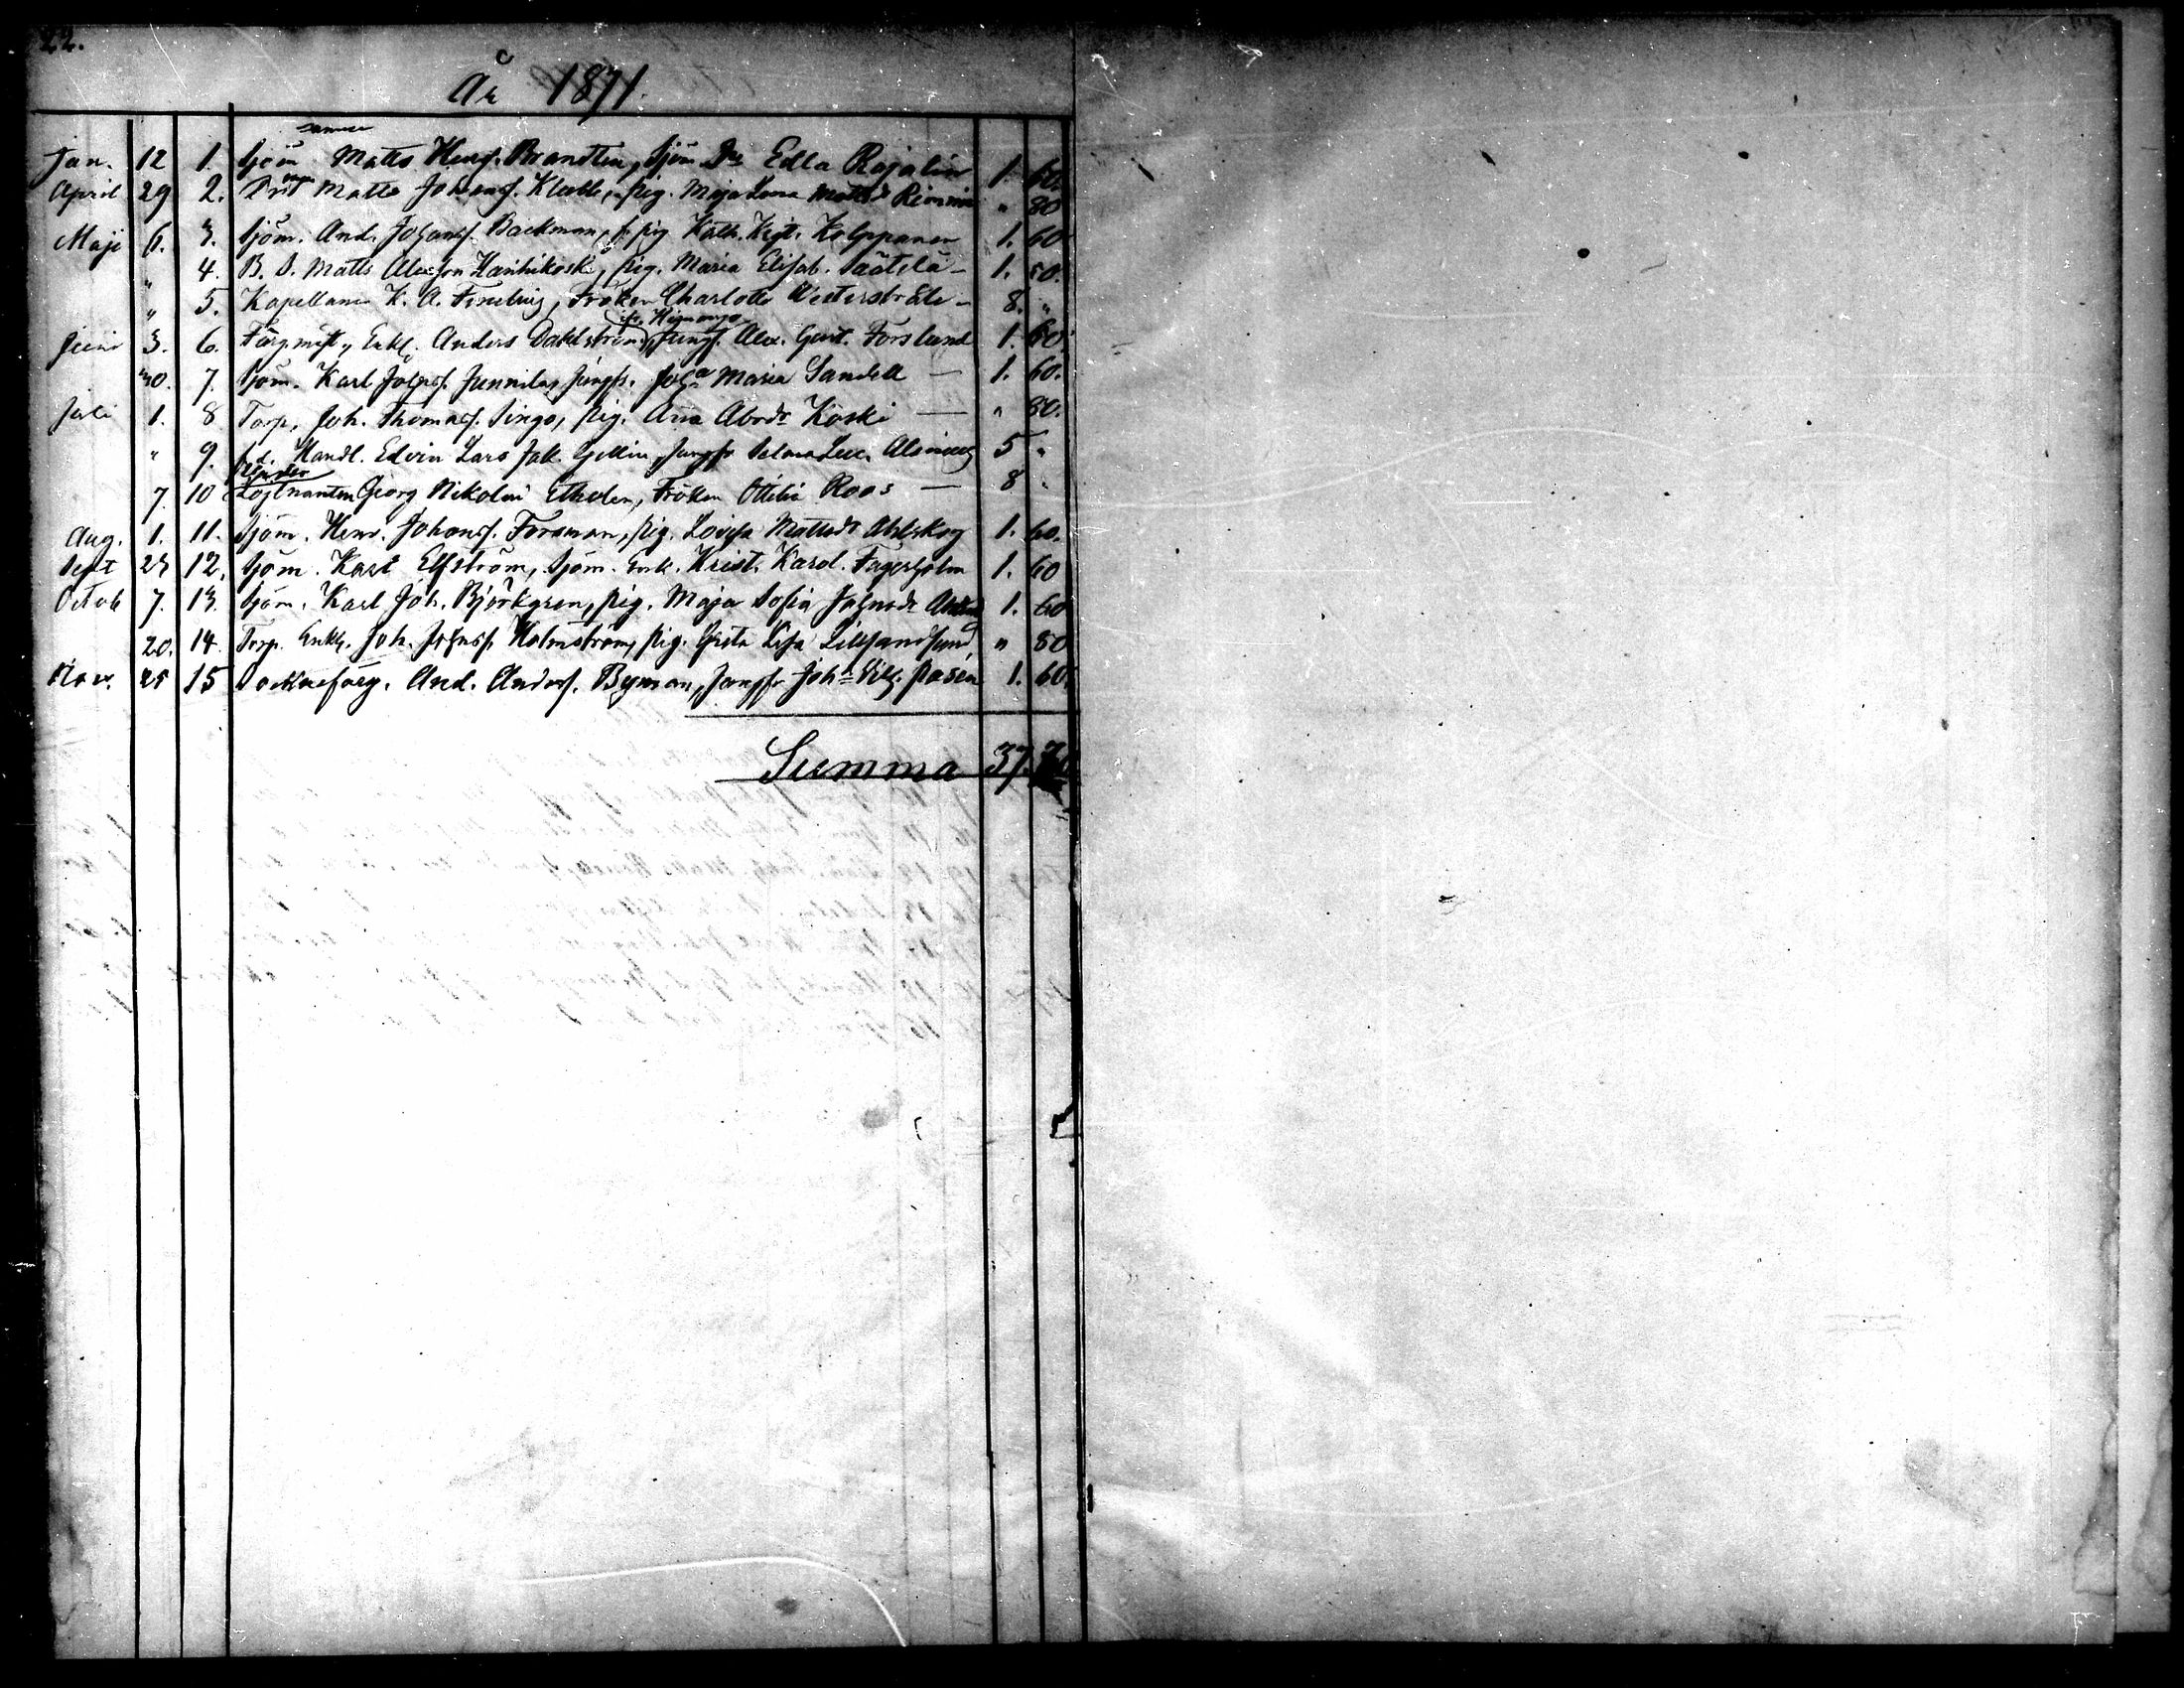 22.
År 1871.
Jan. 12 1. Sjöm Matts Henrs. Brandten, Sjöm Dr Edla Rajalin 1. 60.
April 29 2. Matts Johans. Klubb, pig. Maja Lena Mattsdr Rimmi " 80
Maji 6. 3. Sjöm. And. Johans. Backman, pig. Kath. Krist. Kolppanen 1. 60
" 4. B. S. Matts Alexson Hanhikoski, pig. Maria Elisab. Säätelä - 1. 60.
" 5. Kapellanen K. A. Fineburg, Fröken Charlotte Westerstråle - 8. "
ifr. Himango
Juni 3. 6. Färgmäst., Enkl. Anders Dahlström, Jungf. Alex. Gust. Forslund 1. 60.
30. 7. Sjöm. Karl Johns. Junnila, Jungfr. Joha Maria Sandell — 1. 60.
Juli 1. 8 Torp. Joh. Thomass. Singo, pig. Ana Abrdr Koski — " 80.
" 9. f.d. Handl. Edvin Lars Jak. Gellin, Jungfr Selma Alsineus 5 "
7. 10 Löjtnanten Georg Nikolai Etholen, Fröken Ottilia Roos — 8 "
Aug. 1. 11. Sjöm. Henr. Johans. Forsman, pig. Lovisa Mattsdr Ahlskog 1. 60.
Sept 23 12. Sjöm. Karl Elfström, Sjöm. Enk. Krist. Karol. Fagerholm 1. 60
Octob 7. 13. Sjöm. Karl Joh. Björkgren, pig. Maja Sofia Johnsdr 1. 60
20. 14. Torp. Enkl. Joh. Johnss. Holmström, pig. Greta Lisa Lillsandsund " 80
Nov. 25 15 Sockneförg. And. Anders. Byman, Jungfr Joha Vilh. Pasén 1. 60.
Summa 37.